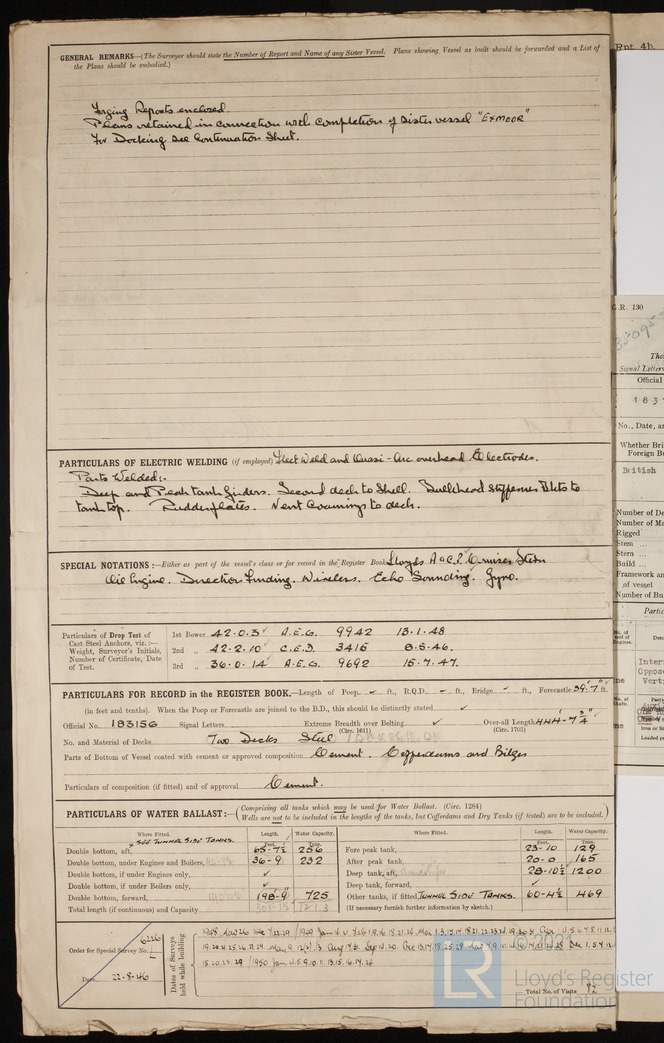 GENERAL REMARKS—(The Surveyor should state the Number of Report and Name of any Sister Vessel. Plans showing Vessel as built should be forwarded and a List of
the Plans should be embodied.)
Forging Reports enclosed.
Plans retained in connection with completion of sister vessel "EXMOOR"
For Docking see Continuation Sheet.
PARTICULARS OF ELECTRIC WELDING (if employed) Fleet Weld and Quasi-Arc overhead Electrodes.
Parts Welded:-
Deep and Peak tank girders. Second deck to Shell. Bulkhead stiffener to
tank top. Rudder plates. Vent Coamings to deck.
SPECIAL NOTATIONS:—Either as part of the vessel's class or for record in the Register Book Lloyds A & C.P. Cruiser Stern
Oil Engine. Direction Finding. Wireless. Echo Sounding. Gyro.
Particulars of Drop Test of
Cast Steel Anchors, viz.:—
Weight, Surveyor's Initials,
Number of Certificate, Date
of Test.
1st Bower 42.0.3 A.E.G. 9942 13.1.48
2nd " 42.2.10 C.E.D. 3415 8.5.46.
3rd " 36.0.14 A.E.G. 9692 15.7.47.
PARTICULARS FOR RECORD in the REGISTER BOOK.—Length of Poop, - ft., R.Q.D. - ft., Bridge - ft., Forecastle 39'-7" ft.
(in feet and tenths). When the Poop or Forecastle are joined to the B.D., this should be distinctly stated
Official No. 183156 Signal Letters Extreme Breadth over Belting Over-all Length 444-7¾
(Circ. 1611) (Circ. 1703)
No. and Material of Decks Two Decks Steel
Parts of Bottom of Vessel coated with cement or approved composition Cement. Cofferdams and Bilges
Particulars of composition (if fitted) and of approval Cement.
PARTICULARS OF WATER BALLAST:— (Comprising all tanks which may be used for Water Ballast. (Circ. 1284)
Wells are not to be included in the lengths of the tanks, but Cofferdams and Dry Tanks (if tested) are to be included.)
Where Fitted. Length. Water Capacity. Where Fitted. Length. Water Capacity.
* SEE TUNNEL SIDE TANKS. Feet. Tons. Feet. Tons.
Double bottom, aft, 65-7½ 256 Fore peak tank, 23-10 129
Double bottom, under Engines and Boilers, 36-9 232 After peak tank, 20-0 165
Double bottom, if under Engines only, Deep tank, aft, 28-10½ 1200
Double bottom, if under Boilers only, Deep tank, forward,
Double bottom, forward, 198-9 725 Other tanks, if fitted, TUNNEL SIDE TANKS. 60-4½ 469
Total length (if continuous) and Capacity (If necessary furnish further information by sketch.)
Order for Special Survey No. 6226
Date 22-8-46
Dates of Surveys
held while building
Total No. of Visits 82
© 2021
LR
Lloyd's Register
Foundation
Rpt. 4b.
C.R. 130
The
Signal Letters
Official
1 8 3 1
No., Date, an
Whether Bri
Foreign Bu
British
Number of De
Number of Ma
Rigged
Stem ...
Stern ...
Build ...
Framework an
of vessel
Number of Bu
Partic
Inter
Oppose
Vert